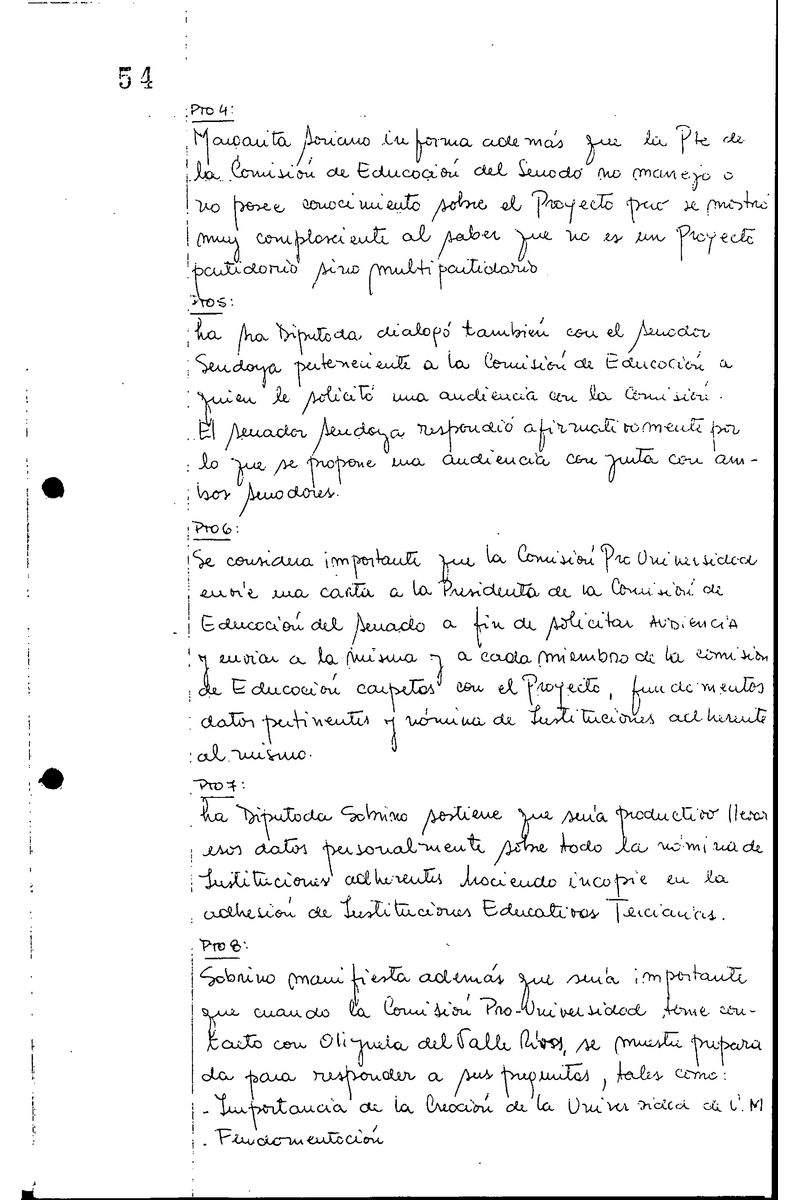 54
Pto 4:
Margarita Soriano informa además que la Pte de
la Comisión de Educación del Senado no maneja o
no posee conocimiento sobre el Proyecto pero se mostró
muy complaciente al saber que no es un Proyecto
partidario sino multipartidario
Pto 5:
La Diputada dialogó también con el Senador
Sendoya perteneciente a la Comisión de Educación a
quien le solicitó una audiencia con la Comisión.
El Senador Sendoya respondió afirmativamente por
lo que se propone una audiencia conjunta con am-
bos senadores.
Pto 6:
Se considera importante que la Comisión Pro Universidad
envíe una carta a la Presidenta de la Comisión de
Educación del Senado a fin de solicitar AUDIENCIA
y enviar a la misma y a cada miembro de la comisión
de Educación carpetas con el Proyecto, fundamentos
datos pertinentes y nómina de Instituciones adherente
al mismo.
Pto 7:
La Diputada Sobrino sostiene que sería productivo llevar
esos datos personalmente sobre todo la nómina de
Instituciones adherentes haciendo incapie en la
adhesión de Instituciones Educativas Terciarias.
Pto 8:
Sobrino manifiesta además que sería importante
que cuando la Comisión Pro-Universidad tome con-
tacto con del Valle Rivas, se muestre prepara
da para responder a sus preguntas, tales como:
- Importancia de la Creación de la Universidad de V.M
. Fundamentación